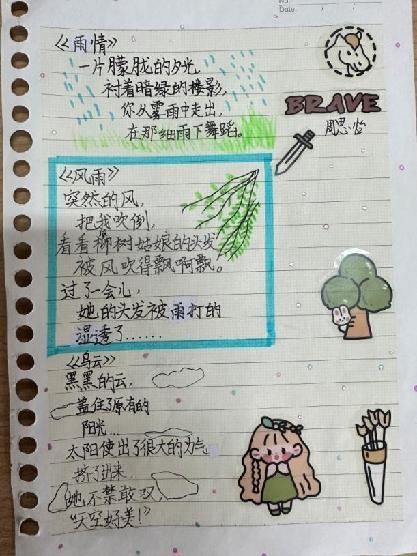 Date:
《雨情》
一片朦胧的夕光,
衬着暗绿的楼影,
你从雾雨中走出,
在那细雨下舞蹈。
BRAVE
周思怡
《风雨》
突然的风,
把我吹倒,
看着柳树姑娘的头发
被风吹得飘啊飘。
过了一会儿,
她的头发被雨打的
湿透了......
《乌云》
黑黑的云,
盖住了原有的
阳光...
太阳使出了很大的力气
挤了进来,
她不禁敢叹
"天空好美!"